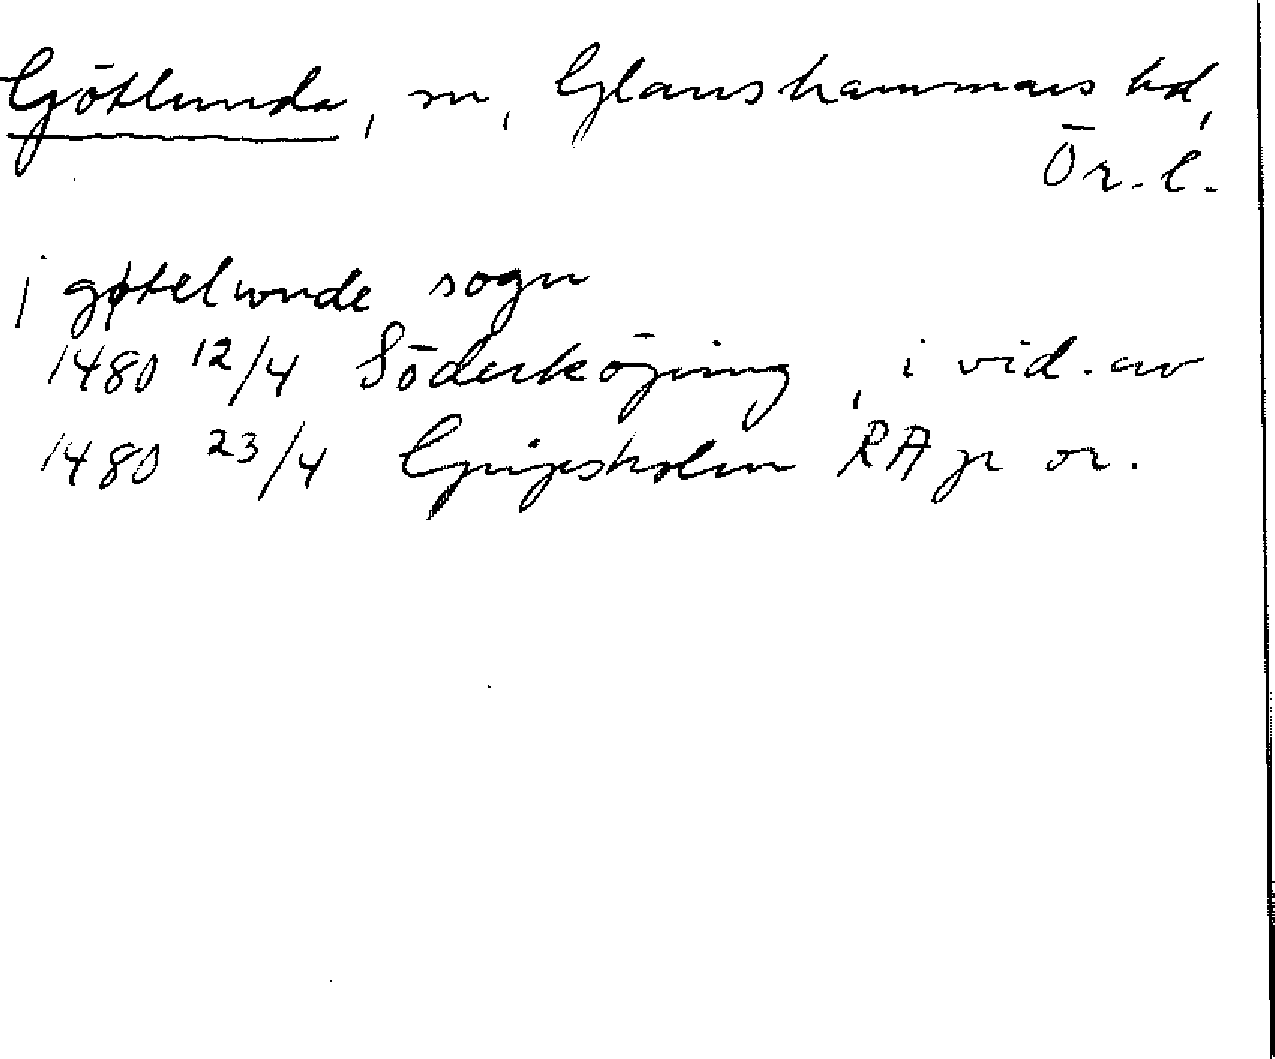 Götlunda, sn, Glanshammars hd,
Ör. l.
j gøtelunde sogn
1480 12/4 Söderköping, i vid. av
1480 23/4 Gripsholm RA p or.